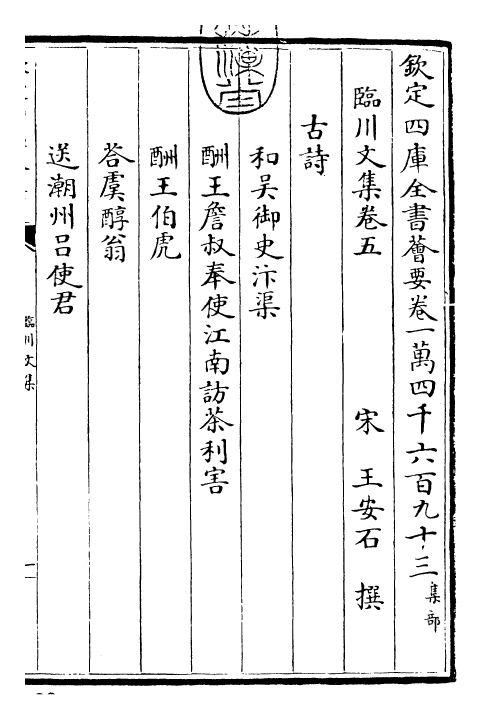 欽定四庫全書薈要卷一萬四千六百九十三集部
臨川文集卷五 宋 王安石 撰
古詩
和吳御史汴渠
酬王詹叔奉使江南訪茶利害
酬王伯虎
荅虞醇翁
送潮州呂使君
臨川文集